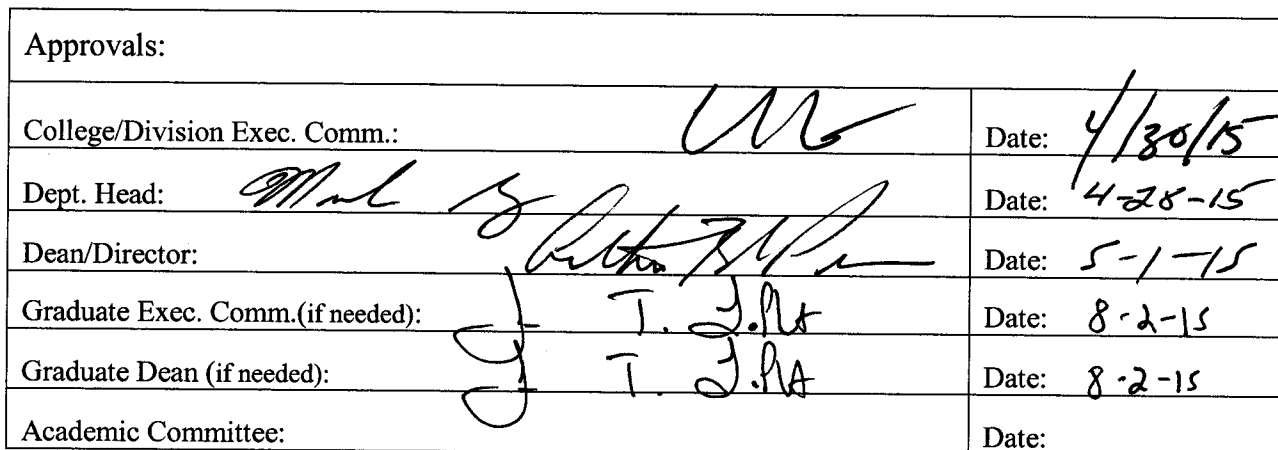 Approvals:
College/Division Exec. Comm.: Date: 4/30/15
Dept. Head: Date: 4-28-15
Dean/Director: Date: 5-1-15
Graduate Exec. Comm.(if needed): J T. Date: 8-2-15
Graduate Dean (if needed): J T. Date: 8-2-15
Academic Committee: Date: